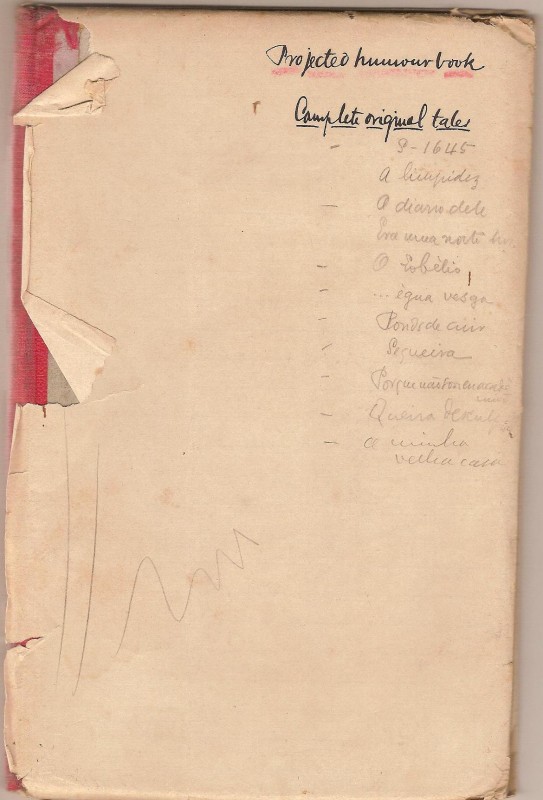 Projected humour book
Complete original tales
- P-1645
A limpidez
- O diario dele
Era uma noite
- O Lobélio
- ... égua vesga
- 
- Siqueira
- Porque não
- Queira
- A minha
velha casa